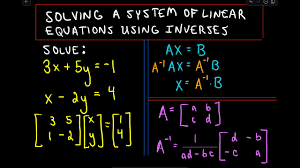 SOLVING A SYSTEM OF LINEAR
EQUATIONS USING INVERSES
SOLVE:
3x + 5y = -1
x - 2y = 4
[3 5
1 -2] [x
y] = [1
4]
AX = B
A⁻¹AX = A⁻¹B
X = A⁻¹·B
A = [a b
c d]
A⁻¹ = 1/(ad-bc) [d -b
-c a]